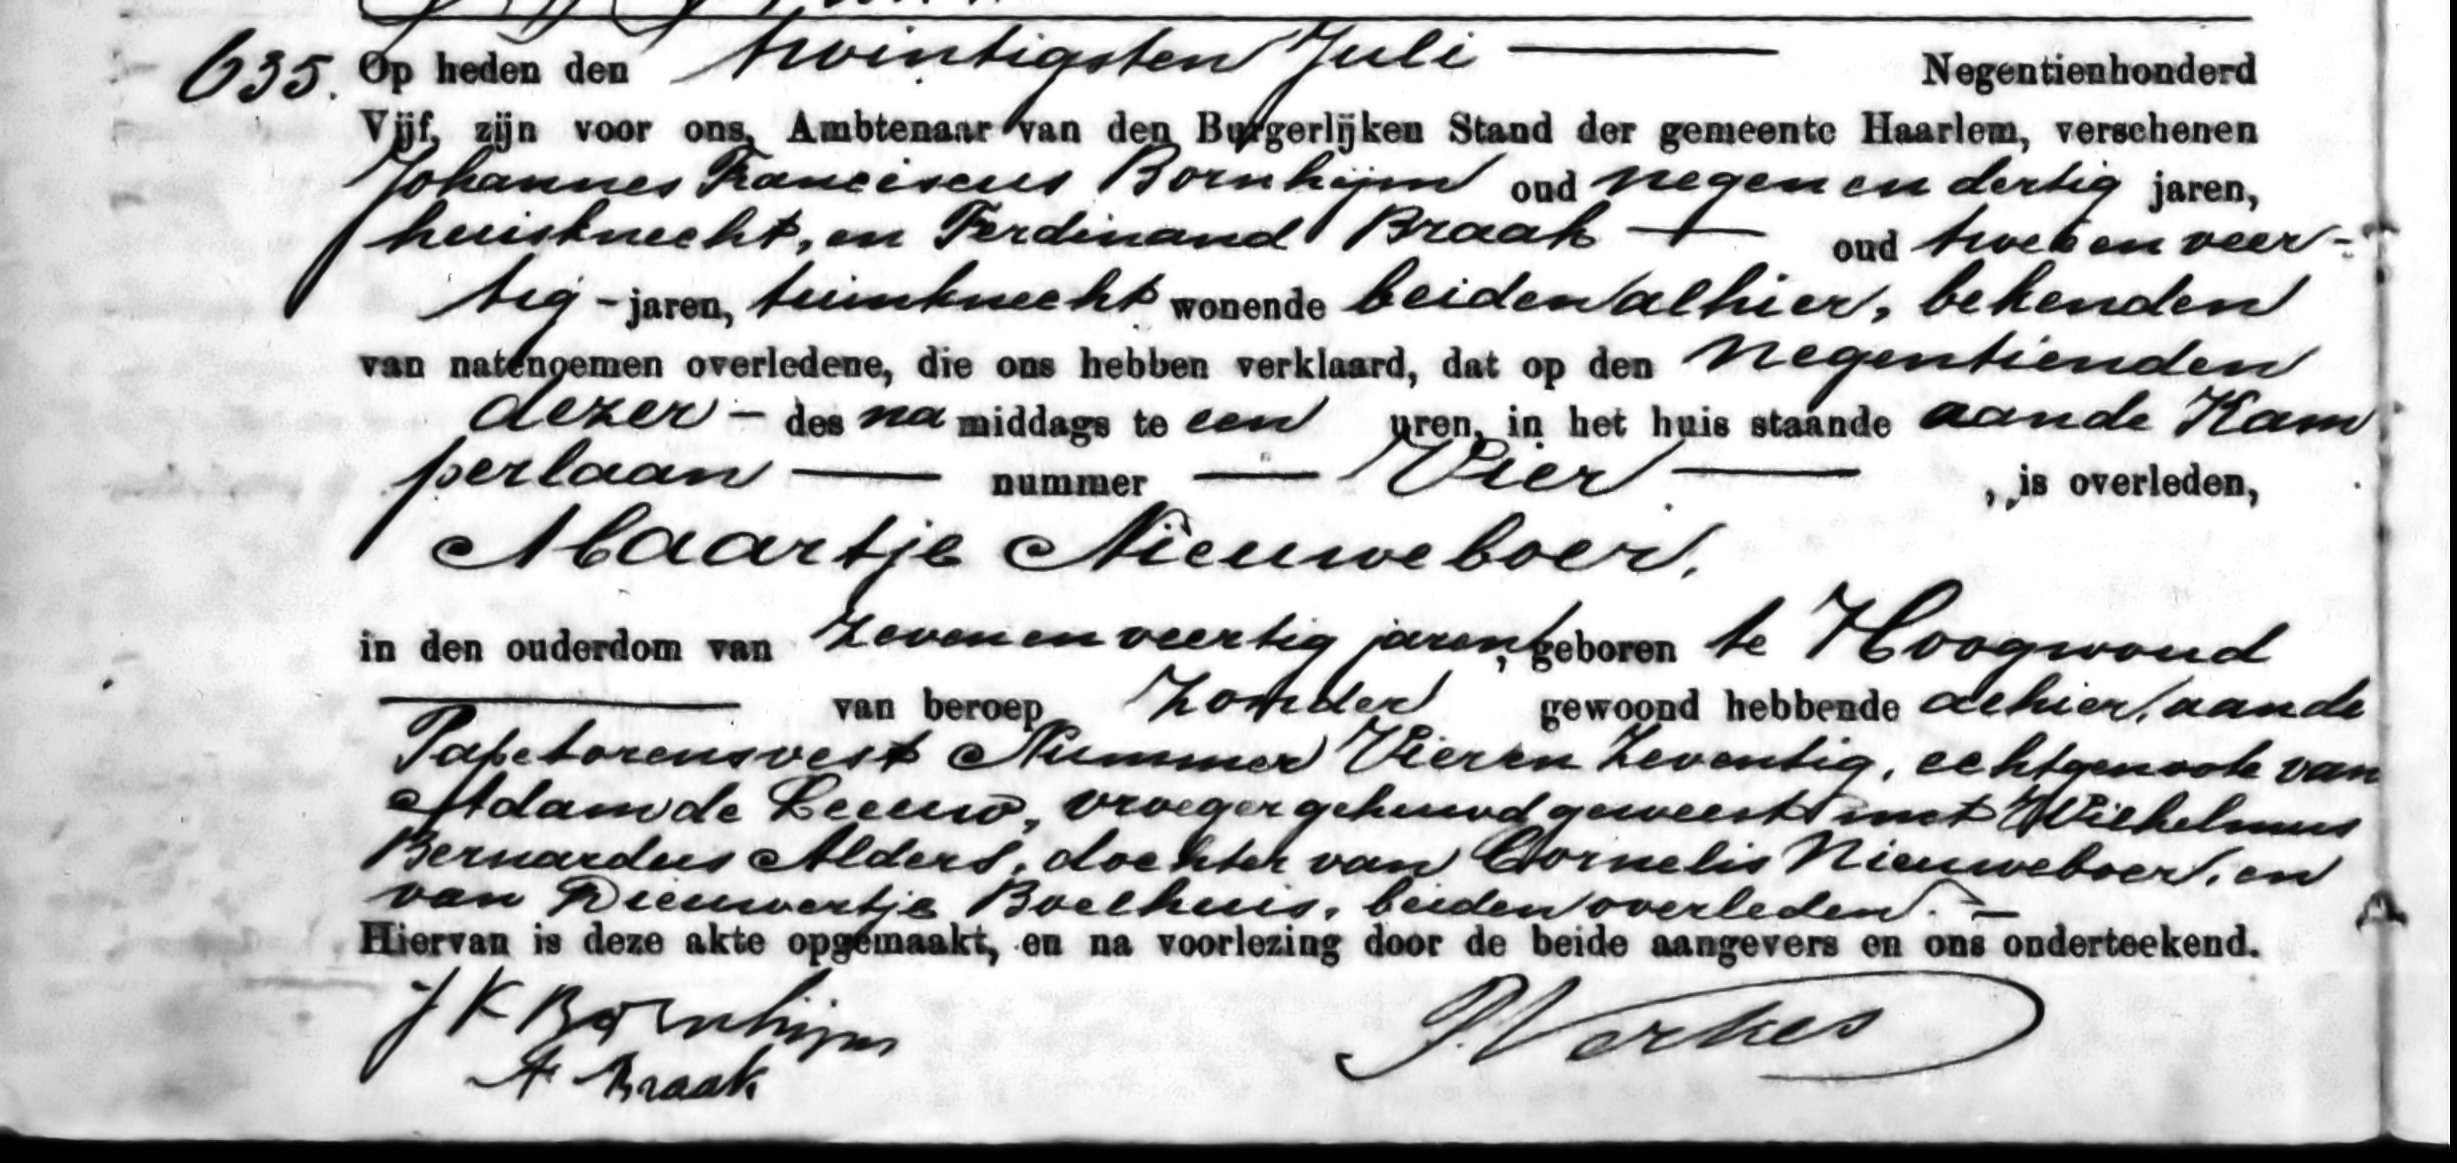 635. Op heden den twintigsten Juli — Negentienhonderd
Vijf, zijn voor ons, Ambtenaar van den Burgerlijken Stand der gemeente Haarlem, verschenen
Johannes Franciscus Bornhijm oud negen en dertig jaren,
huisknecht, en Ferdinand Braak — oud twee en veer-
tig - jaren, tuinknecht wonende beiden alhier, bekenden
van natenoemen overledene, die ons hebben verklaard, dat op den negentienden
dezer - des na middags te een uren, in het huis staande aan de Kam
perlaan — nummer — Vier — , is overleden,
Maartje Nieuweboer.
in den ouderdom van zeven en veertig jaren, geboren te Hoogwoud
— van beroep zonder gewoond hebbende alhier, aan de
Papetorensvest Nummer Vier en Zeventig, echtgenoote van
Adam de Leeuw, vroeger gehuwd geweest met Wilhelmus
Bernardus Alders, dochter van Cornelis Nieuweboer, en
van Dieuwertje Boelhuis, beiden overleden. —
Hiervan is deze akte opgemaakt, en na voorlezing door de beide aangevers en ons onderteekend.
J F Bornhijm
F Braak
P. Verkes